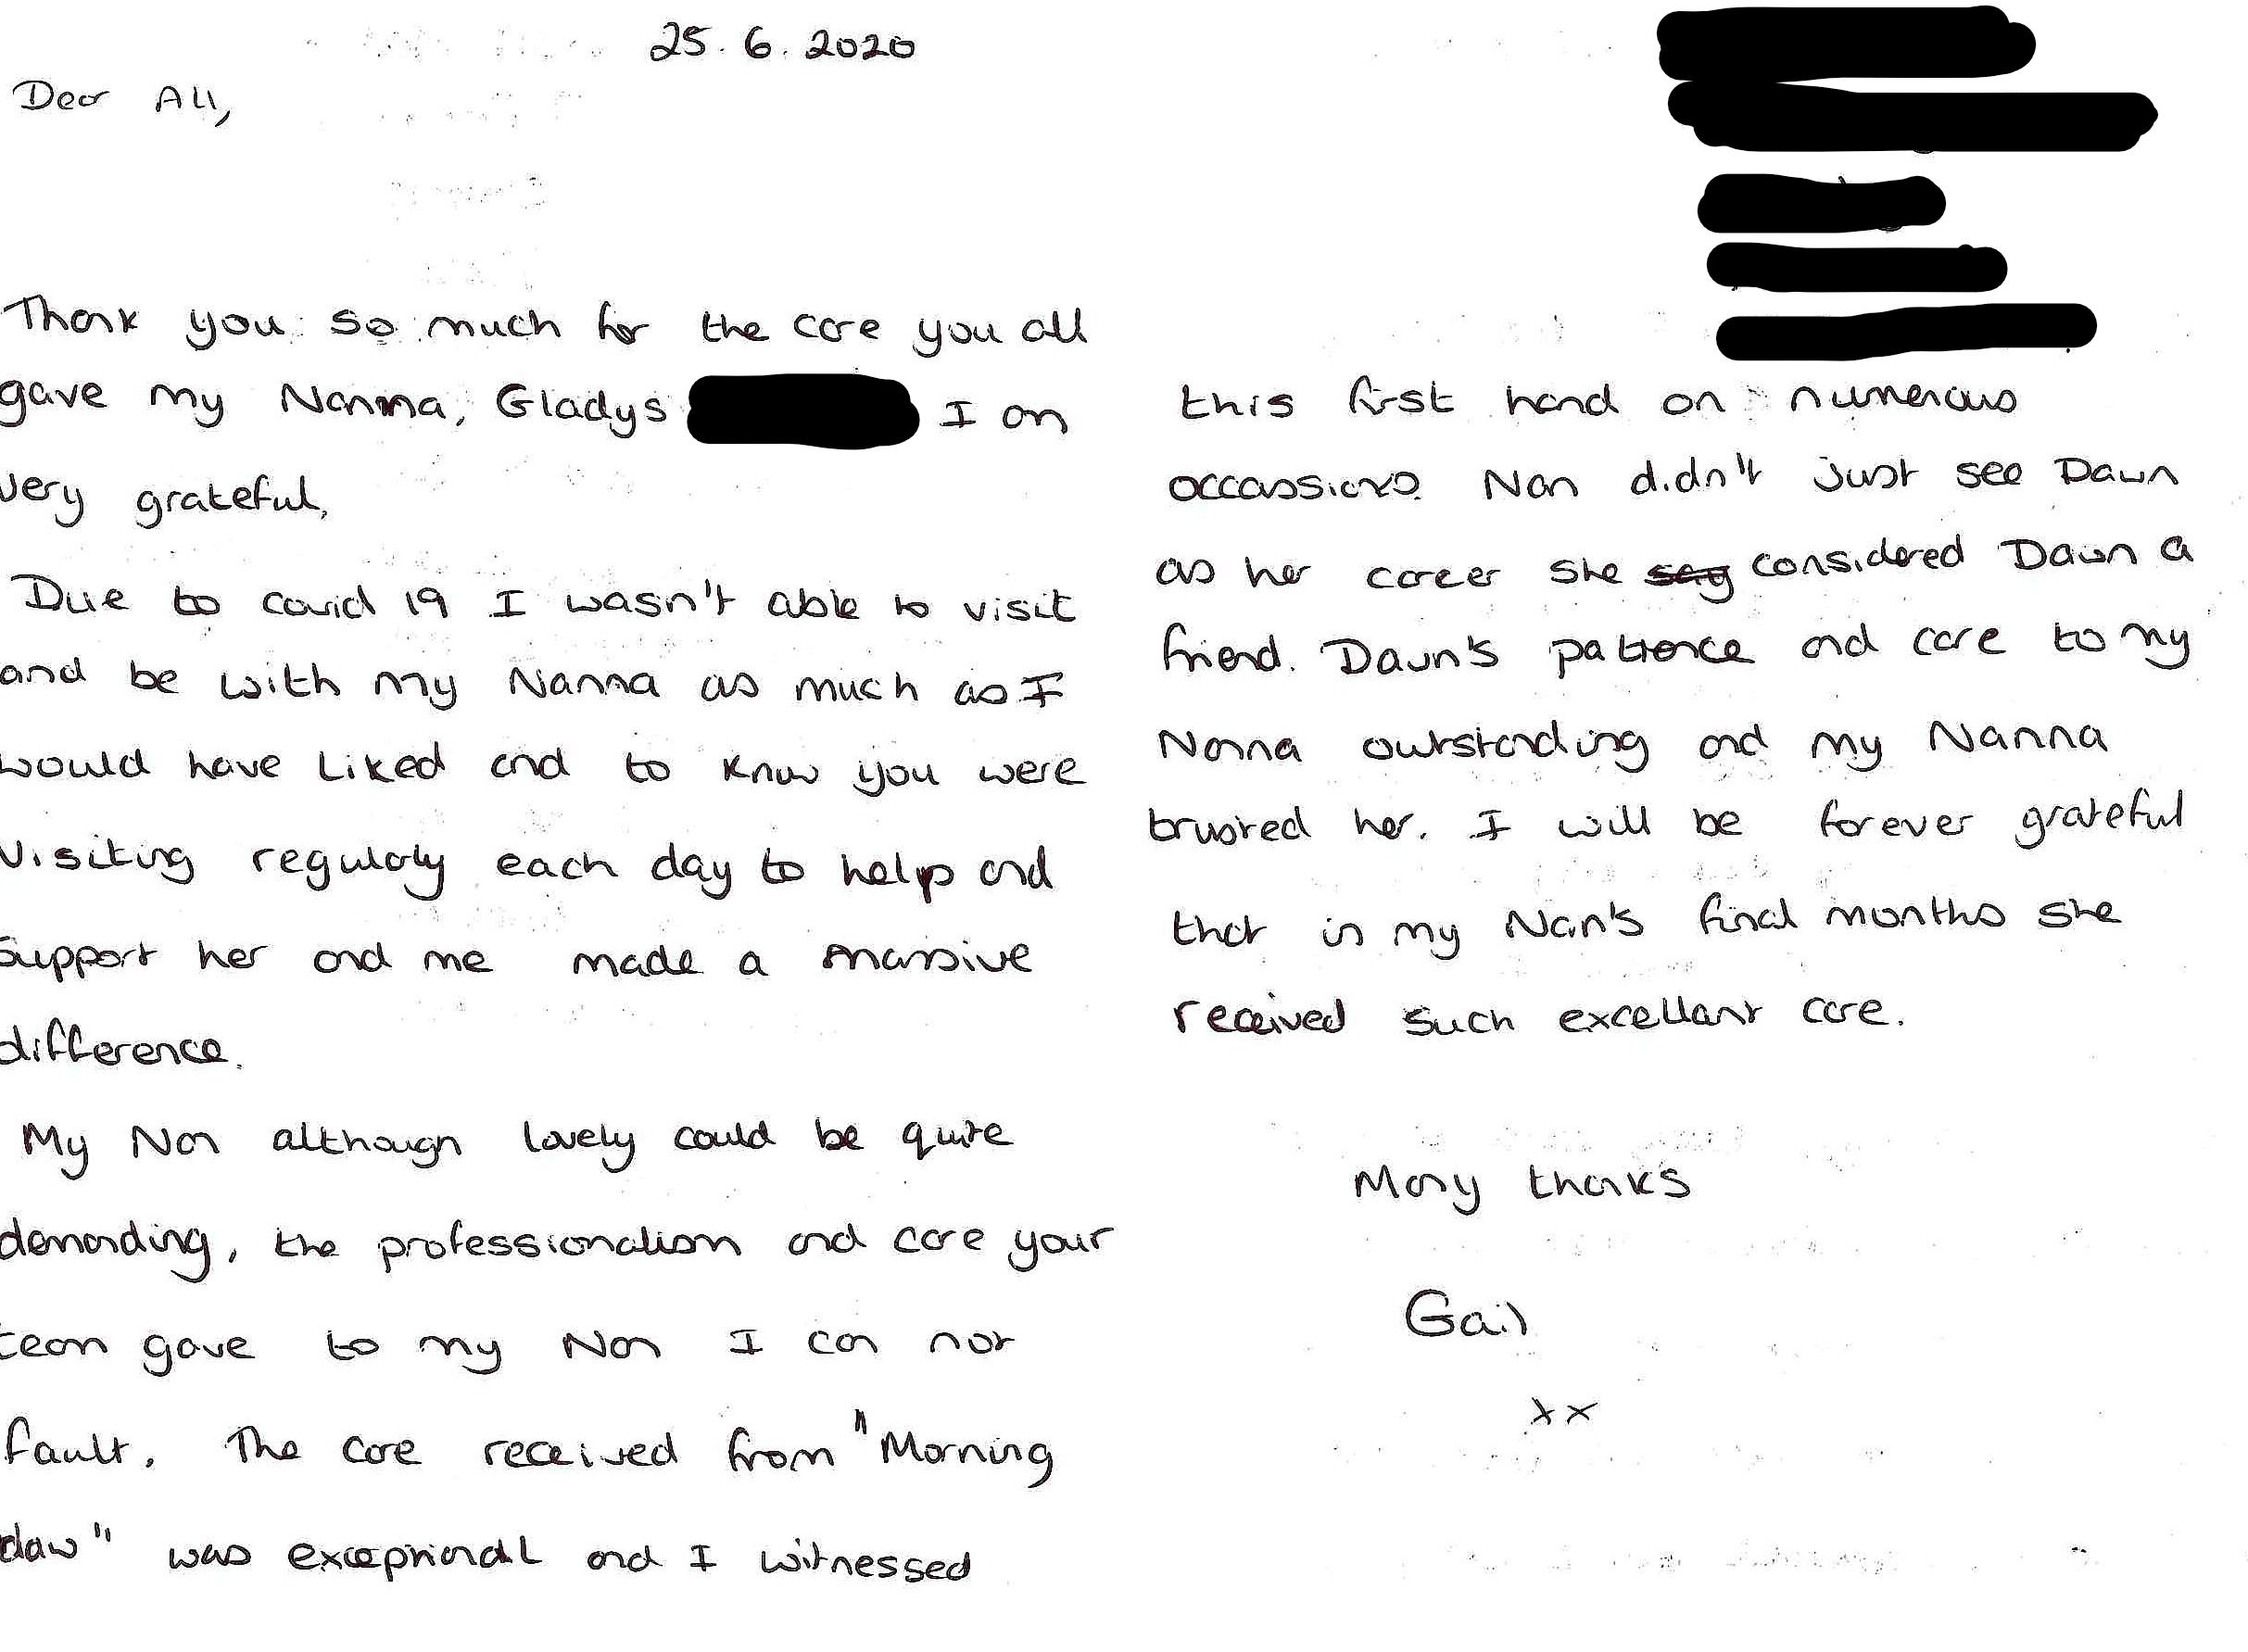 25.6.2020
Dear All,
Thank you so much for the care you all
gave my Nanna, Gladys I am
very grateful,
Due to covid 19 I wasn't able to visit
and be with my Nanna as much as I
would have liked and to know you were
visiting regularly each day to help and
support her and me made a massive
difference.
My Nan although lovely could be quite
demanding, the professionalism and care your
team gave to my Nan I can not
fault. The care received from "Morning
daw" was exceptional and I witnessed
this first hand on numerous
occassions. Nan didn't just see Dawn
as her career she say considered Dawn a
friend. Dawn's patience and care to my
Nanna outstanding and my Nanna
trusted her. I will be forever grateful
that in my Nan's final months she
received such excellant care.
Many thanks
Gail
xx